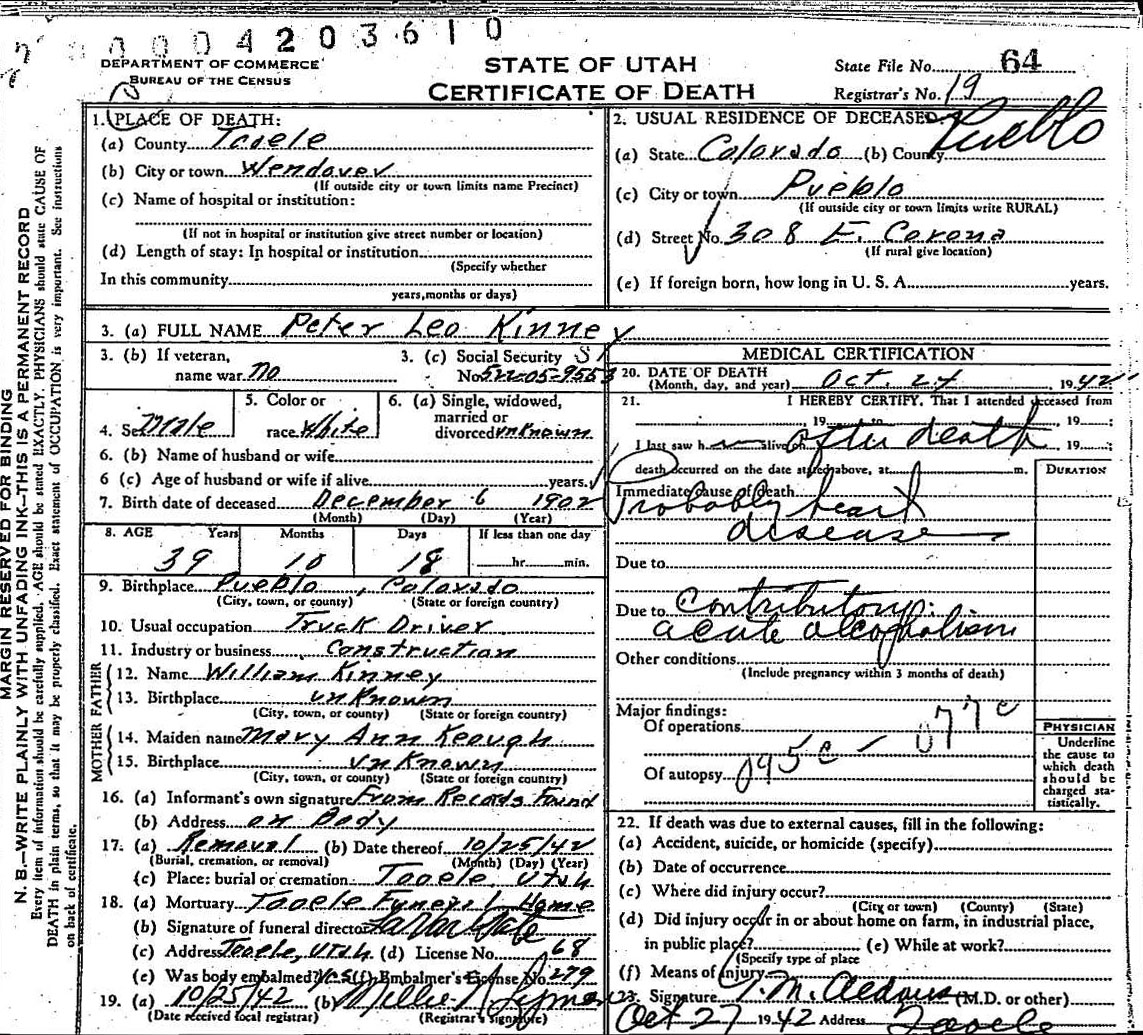 0004203610
DEPARTMENT OF COMMERCE
BUREAU OF THE CENSUS
STATE OF UTAH
CERTIFICATE OF DEATH
State File No. 64
Registrar's No. 19
MARGIN RESERVED FOR BINDING
N. B.—WRITE PLAINLY WITH UNFADING INK—THIS IS A PERMANENT RECORD
Every item of information should be carefully supplied. AGE should be stated EXACTLY. PHYSICIANS should state CAUSE OF
DEATH in plain terms, so that it may be properly classified. Exact statement of OCCUPATION is very important. See instructions
on back of certificate.
1. PLACE OF DEATH:
(a) County Tooele
(b) City or town Wendover
(If outside city or town limits name Precinct)
(c) Name of hospital or institution:
(If not in hospital or institution give street number or location)
(d) Length of stay: In hospital or institution
(Specify whether
In this community
years, months or days)
2. USUAL RESIDENCE OF DECEASED
(a) State Colorado (b) County Pueblo
(c) City or town Pueblo
(If outside city or town limits write RURAL)
(d) Street No. 308 E. Corona
(If rural give location)
(e) If foreign born, how long in U. S. A. years.
3. (a) FULL NAME Peter Leo Kinney
3. (b) If veteran, name war no
3. (c) Social Security No. 522-05-9553
4. Sex Male
5. Color or race White
6. (a) Single, widowed, married or divorced unknown
6. (b) Name of husband or wife
6 (c) Age of husband or wife if alive years.
7. Birth date of deceased December 6 1902
(Month) (Day) (Year)
8. AGE Years Months Days If less than one day
39 10 18 hr. min.
9. Birthplace Pueblo, Colorado
(City, town, or county) (State or foreign country)
10. Usual occupation Truck Driver
11. Industry or business Construction
FATHER
12. Name William Kinney
13. Birthplace unknown
(City, town, or county) (State or foreign country)
MOTHER
14. Maiden name Mary Ann Keough
15. Birthplace unknown
(City, town, or county) (State or foreign country)
16. (a) Informant's own signature From Records Found
(b) Address on Body
17. (a) Removal (b) Date thereof 10/25/42
(Burial, cremation, or removal) (Month) (Day) (Year)
(c) Place: burial or cremation Tooele, Utah
18. (a) Mortuary Tooele Funeral Home
(b) Signature of funeral director
(c) Address Tooele, Utah (d) License No. 68
(e) Was body embalmed? Yes (f) Embalmer's License No. 279
19. (a) 10/25/42 (b) Millie
(Date received local registrar) (Registrar's signature)
MEDICAL CERTIFICATION
20. DATE OF DEATH
(Month, day, and year) Oct. 24, 1942
21. I HEREBY CERTIFY, That I attended deceased from
19 to 19
I last saw h alive on after death 19
death occurred on the date stated above, at m.
DURATION
Immediate cause of death
Probably heart
disease
Due to
Due to contributory:
acute alcoholism
Other conditions
(Include pregnancy within 3 months of death)
Major findings:
Of operations
077c
Of autopsy 095c
PHYSICIAN
Underline
the cause to
which death
should be
charged sta-
tistically.
22. If death was due to external causes, fill in the following:
(a) Accident, suicide, or homicide (specify)
(b) Date of occurrence
(c) Where did injury occur?
(City or town) (County) (State)
(d) Did injury occur in or about home on farm, in industrial place,
in public place? (e) While at work?
(Specify type of place
(f) Means of injury
23. Signature T. M. (M.D. or other)
Oct 27 1942 Address Tooele